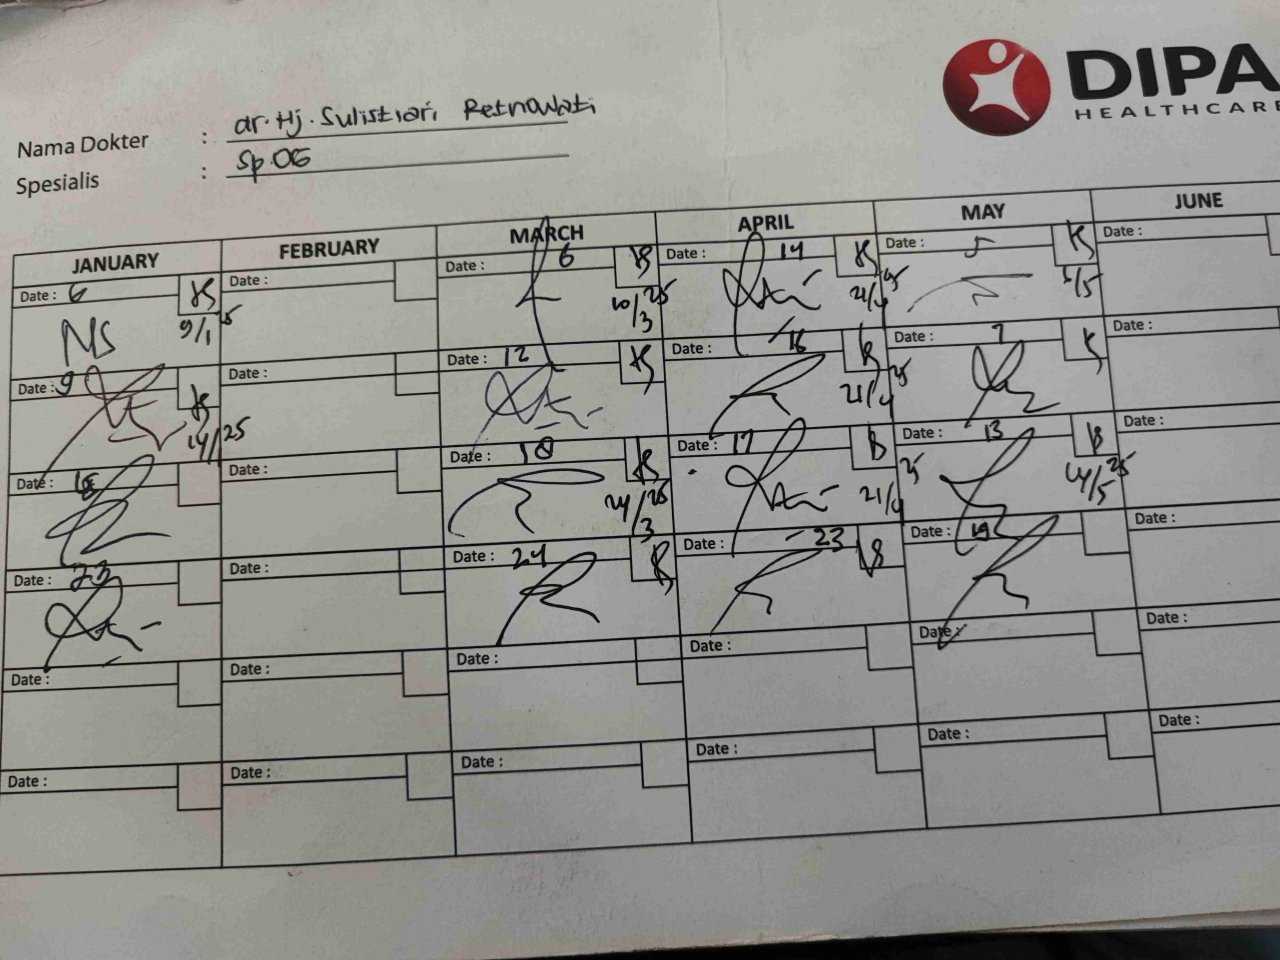 DIPA
HEALTHCARE
Nama Dokter : dr. Hj. Sulistiari Retnowati
Spesialis : Sp.OG
JANUARY FEBRUARY MARCH APRIL MAY JUNE
Date : 6 Date : Date : 6 Date : 14 Date : 5 Date :
9/1 25 10/3 25 21/4 25 6/5
NS
Date : 9 Date : Date : 12 Date : 16 Date : 7 Date :
14/ 25 21/4 25
Date : Date : Date : 18 Date : 17 Date : 13 Date :
24/3 25 21/4 25 14/5 25
Date : 23 Date : Date : 24 Date : 23 Date : 19 Date :
Date : Date : Date : Date : Date : Date :
Date : Date : Date : Date : Date : Date :